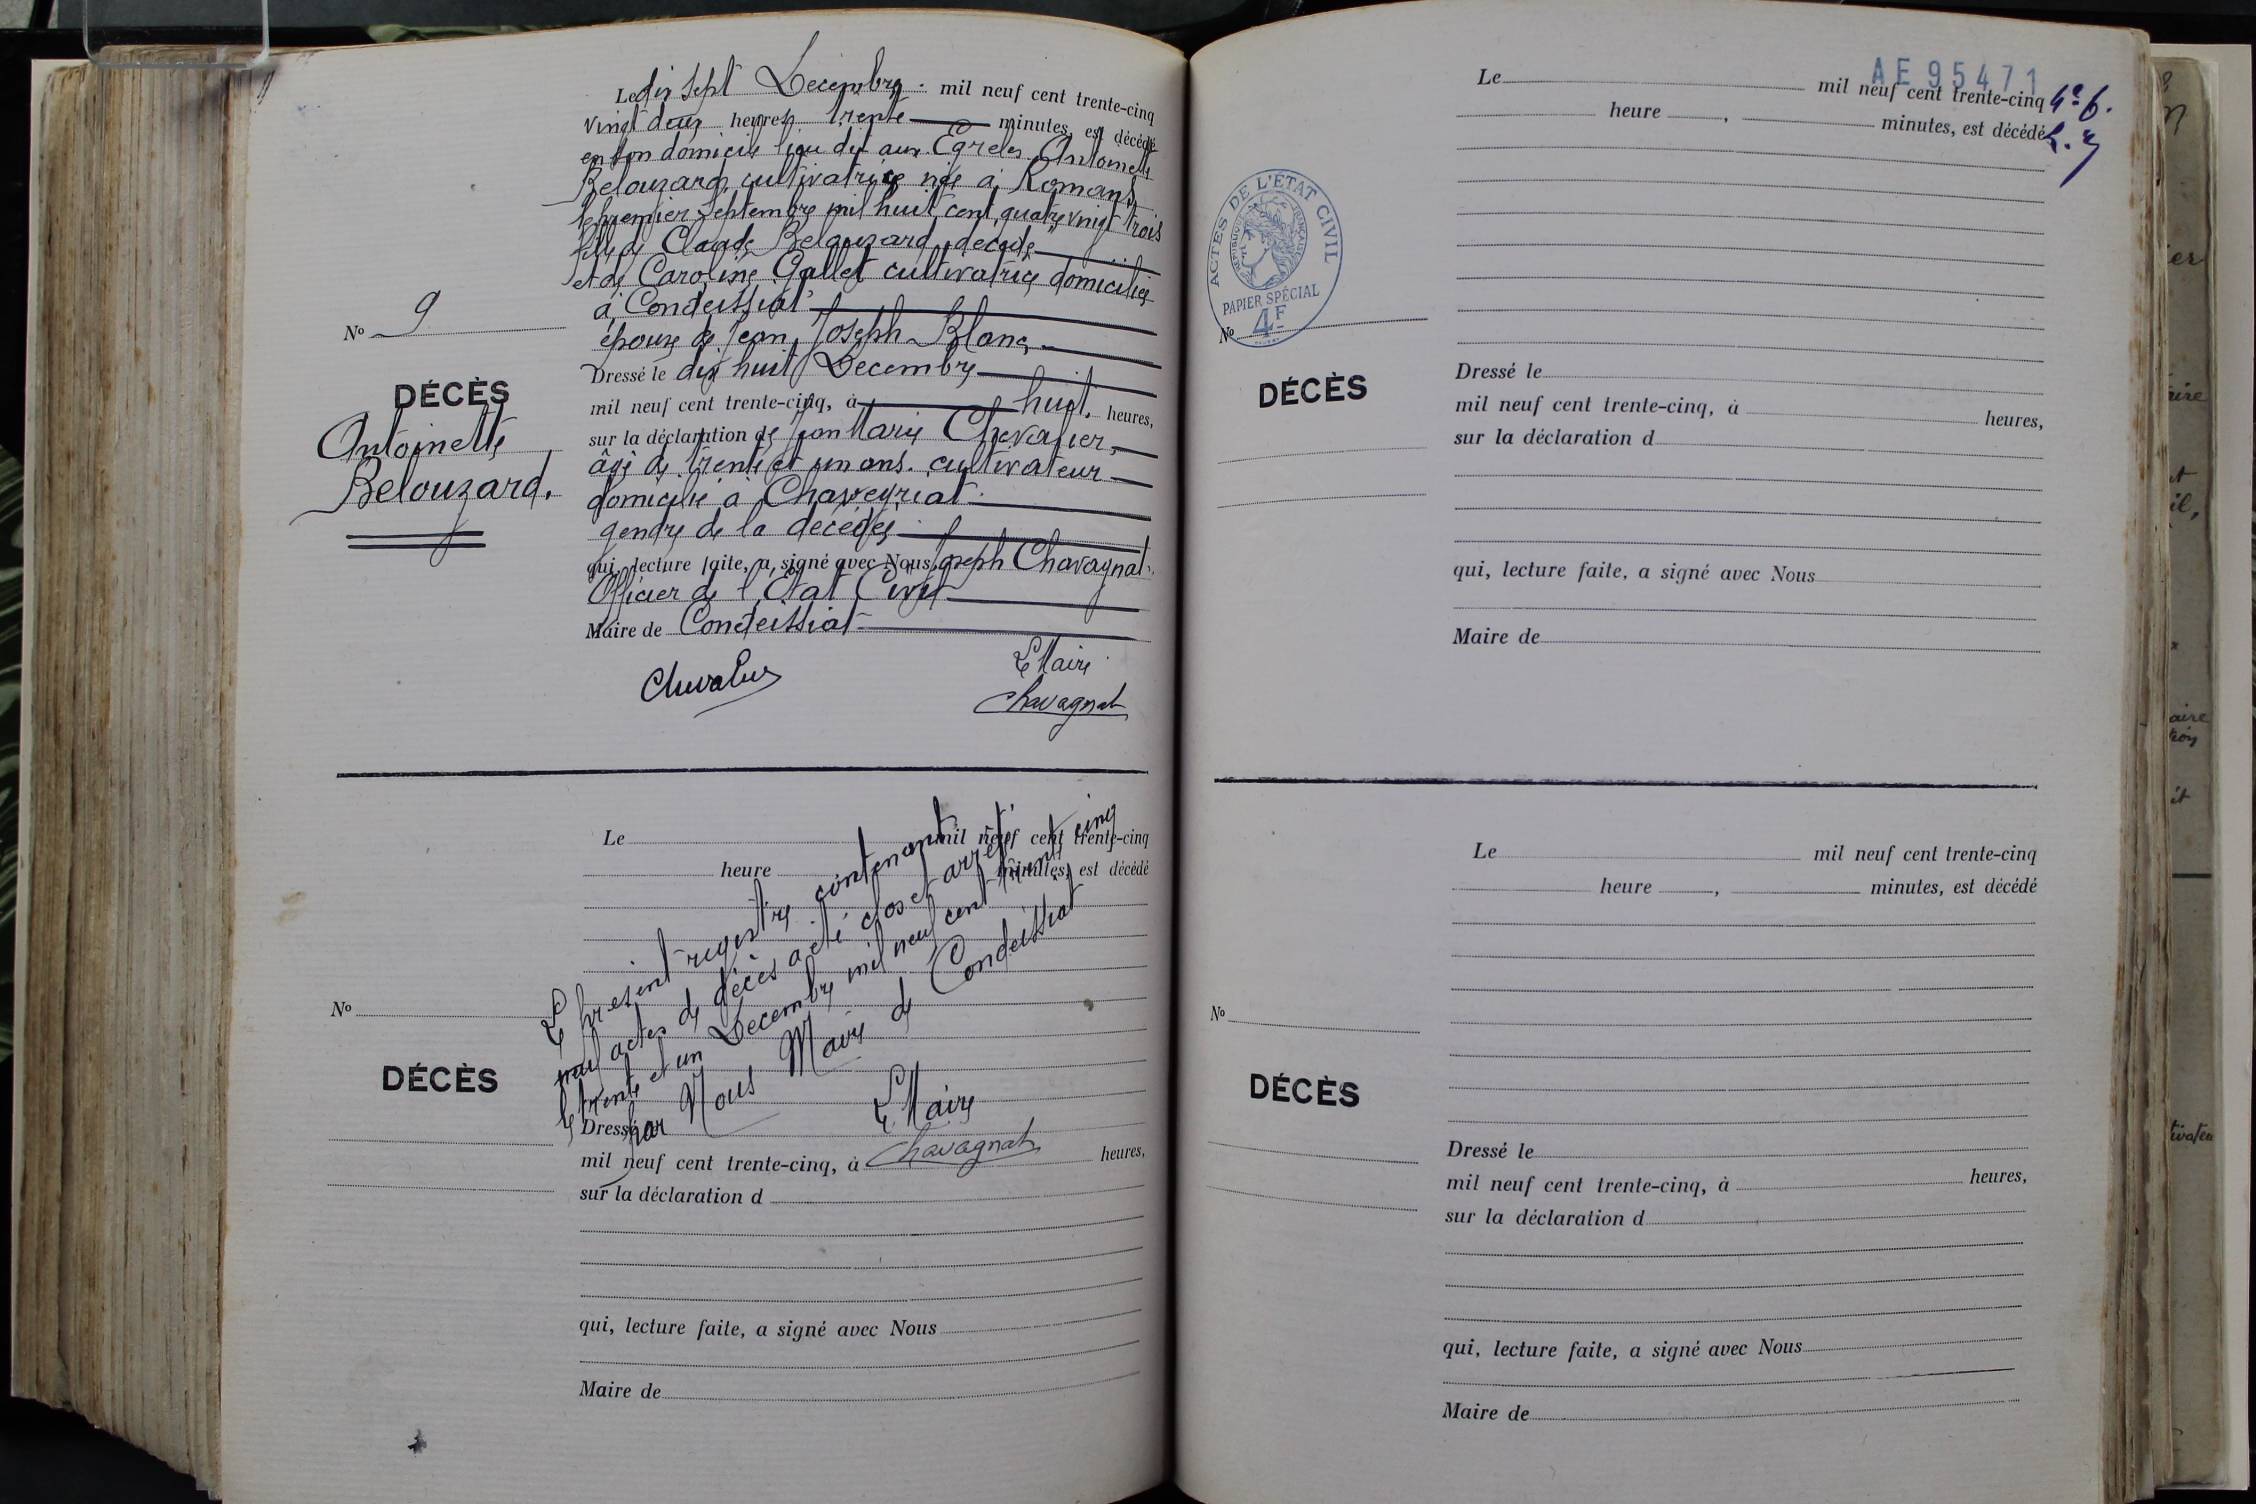 Le dix sept Décembre mil neuf cent trente-cinq
vingt deux heures trente minutes, est décédé
en son domicile lieu dit aux Egrelen Antoinette
Belouzard, cultivatrice née à Romans,
le premier Septembre mil huit cent quatre vingt trois
fille de Claude Belouzard, décédé
et de Caroline Gallet cultivatrice domiciliée
à Condeissiat
épouse de Jean Joseph Blanc
Nº 9
DÉCÈS
Antoinette
Belouzard.
Dressé le dix huit Décembre
mil neuf cent trente-cinq, à huit heures,
sur la déclaration de Jean Marie Chevalier,
âgé de trente et un ans. cultivateur
domicilié à Chaveyriat
gendre de la décédée
qui, lecture faite, a signé avec Nous, Joseph Chavagnat
Officier de l'État Civil
Maire de Condeissiat
Chevalier
Le Maire
Chavagnat
Le mil neuf cent trente-cinq
heure minutes, est décédé
Nº
DÉCÈS
Le présent registre contenant
neuf actes de décès a été clos et arrêté
le trente et un Décembre mil neuf cent trente cinq
par Nous Maire de Condeissiat
Le Maire
Chavagnat
Dressé
mil neuf cent trente-cinq, à heures,
sur la déclaration d
qui, lecture faite, a signé avec Nous
Maire de
AE95471
Le mil neuf cent trente-cinq
heure , minutes, est décédé
ACTES DE L'ÉTAT CIVIL
RÉPUBLIQUE FRANÇAISE
PAPIER SPÉCIAL
4F
Nº
DÉCÈS
Dressé le
mil neuf cent trente-cinq, à heures,
sur la déclaration d
qui, lecture faite, a signé avec Nous
Maire de
Le mil neuf cent trente-cinq
heure , minutes, est décédé
Nº
DÉCÈS
Dressé le
mil neuf cent trente-cinq, à heures,
sur la déclaration d
qui, lecture faite, a signé avec Nous
Maire de